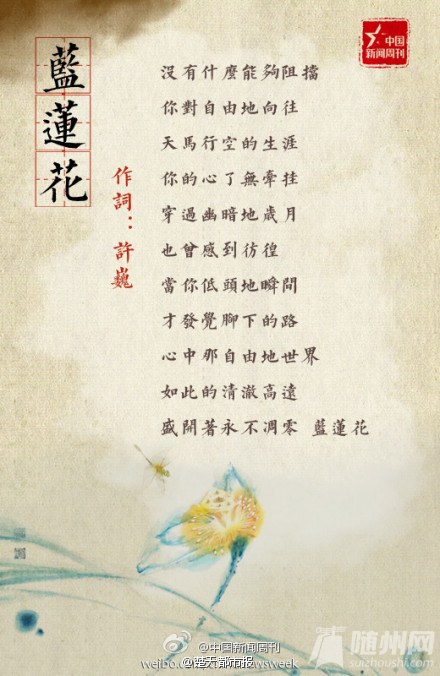 藍蓮花
中国
新闻周刊
作詞：許巍
沒有什麼能夠阻擋
你對自由地向往
天馬行空的生涯
你的心了無牽挂
穿過幽暗地歲月
也曾感到彷徨
當你低頭地瞬間
才發覺腳下的路
心中那自由地世界
如此的清澈高遠
盛開著永不凋零 藍蓮花
@中国新闻周刊
@楚天都市报
随州网
suizhoushi.com